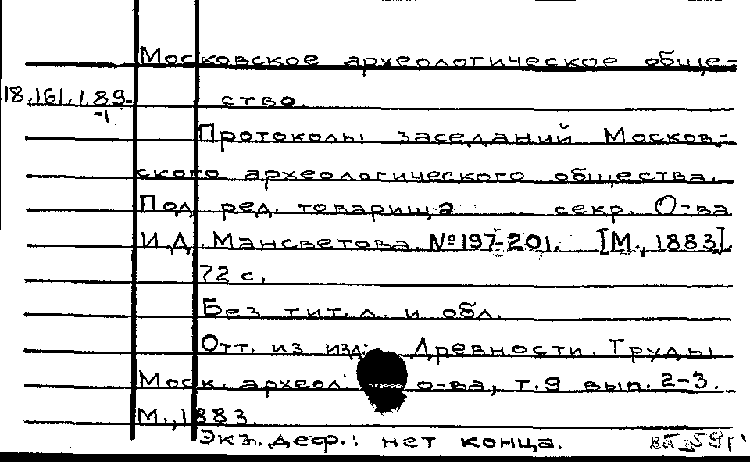 Московское археологическое обще-
18.161.1.89-1
ство.
Протоколы заседаний Москов-
ского археологического общества.
Под ред. товарища секр. О-ва
И.Д. Мансветова. №197-201. [М., 1883].
72 с.
Без тит. л. и обл.
Отт. из изд.: Древности. Труды
Моск. археол о-ва, т.9 вып. 2-3.
М., 1883.
Экз. деф.: нет конца.